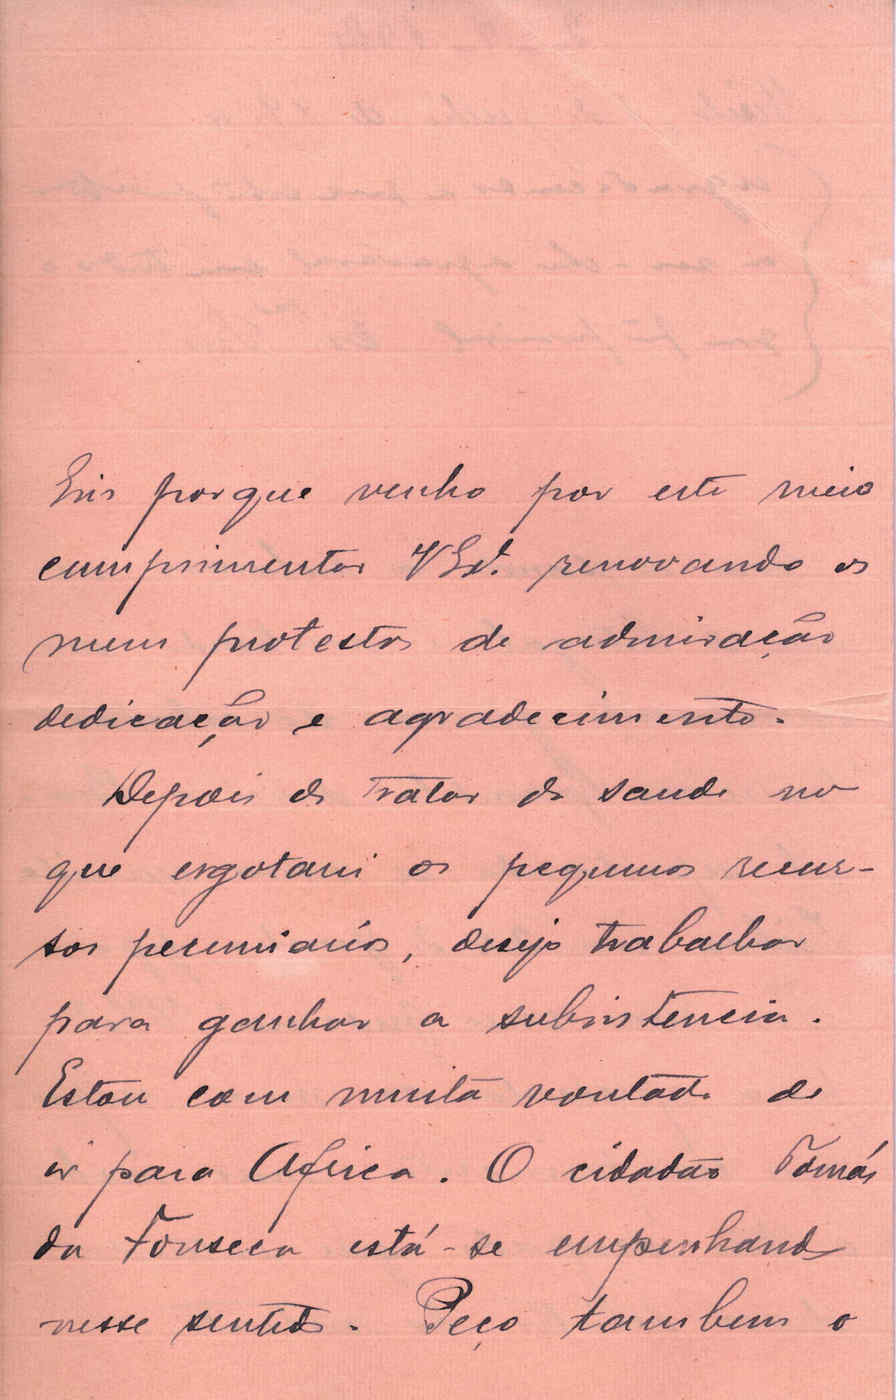 Eis porque venho por este meio
cumprimentar VExª. renovando os
meus protestos de admiração
dedicação e agradecimento.
Depois de tratar da saude no
que esgotarei os pequenos recur-
sos pecuniarios, desejo trabalhar
para ganhar a subsistencia.
Estou com muita vontade de
ir para Africa. O cidadão Tomás
da Fonseca está-se empenhando
nesse sentido. Peço tambem o